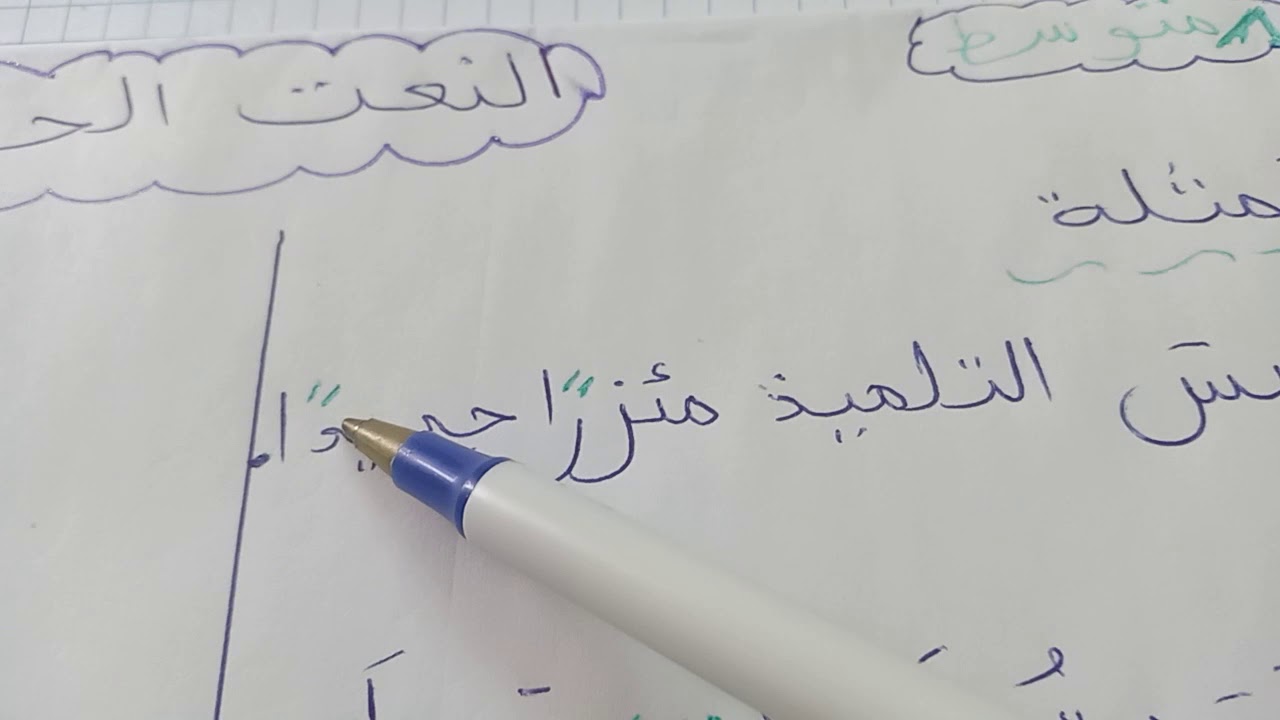 متوسط
النعت الح
مثلة
بسَ التلميذ مئزرًا جديدًا.